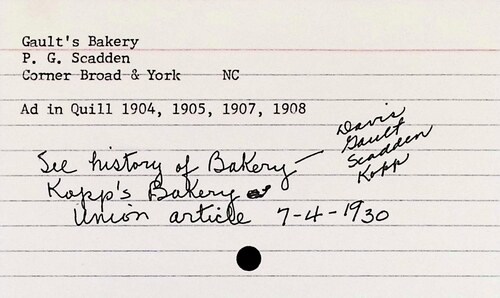 Gault's Bakery
P. G. Scadden
Corner Broad & York NC
Ad in Quill 1904, 1905, 1907, 1908
See history of Bakery —
Davis
Gault
Scadden
Kopp
Kopp's Bakery
Union article 7-4-1930